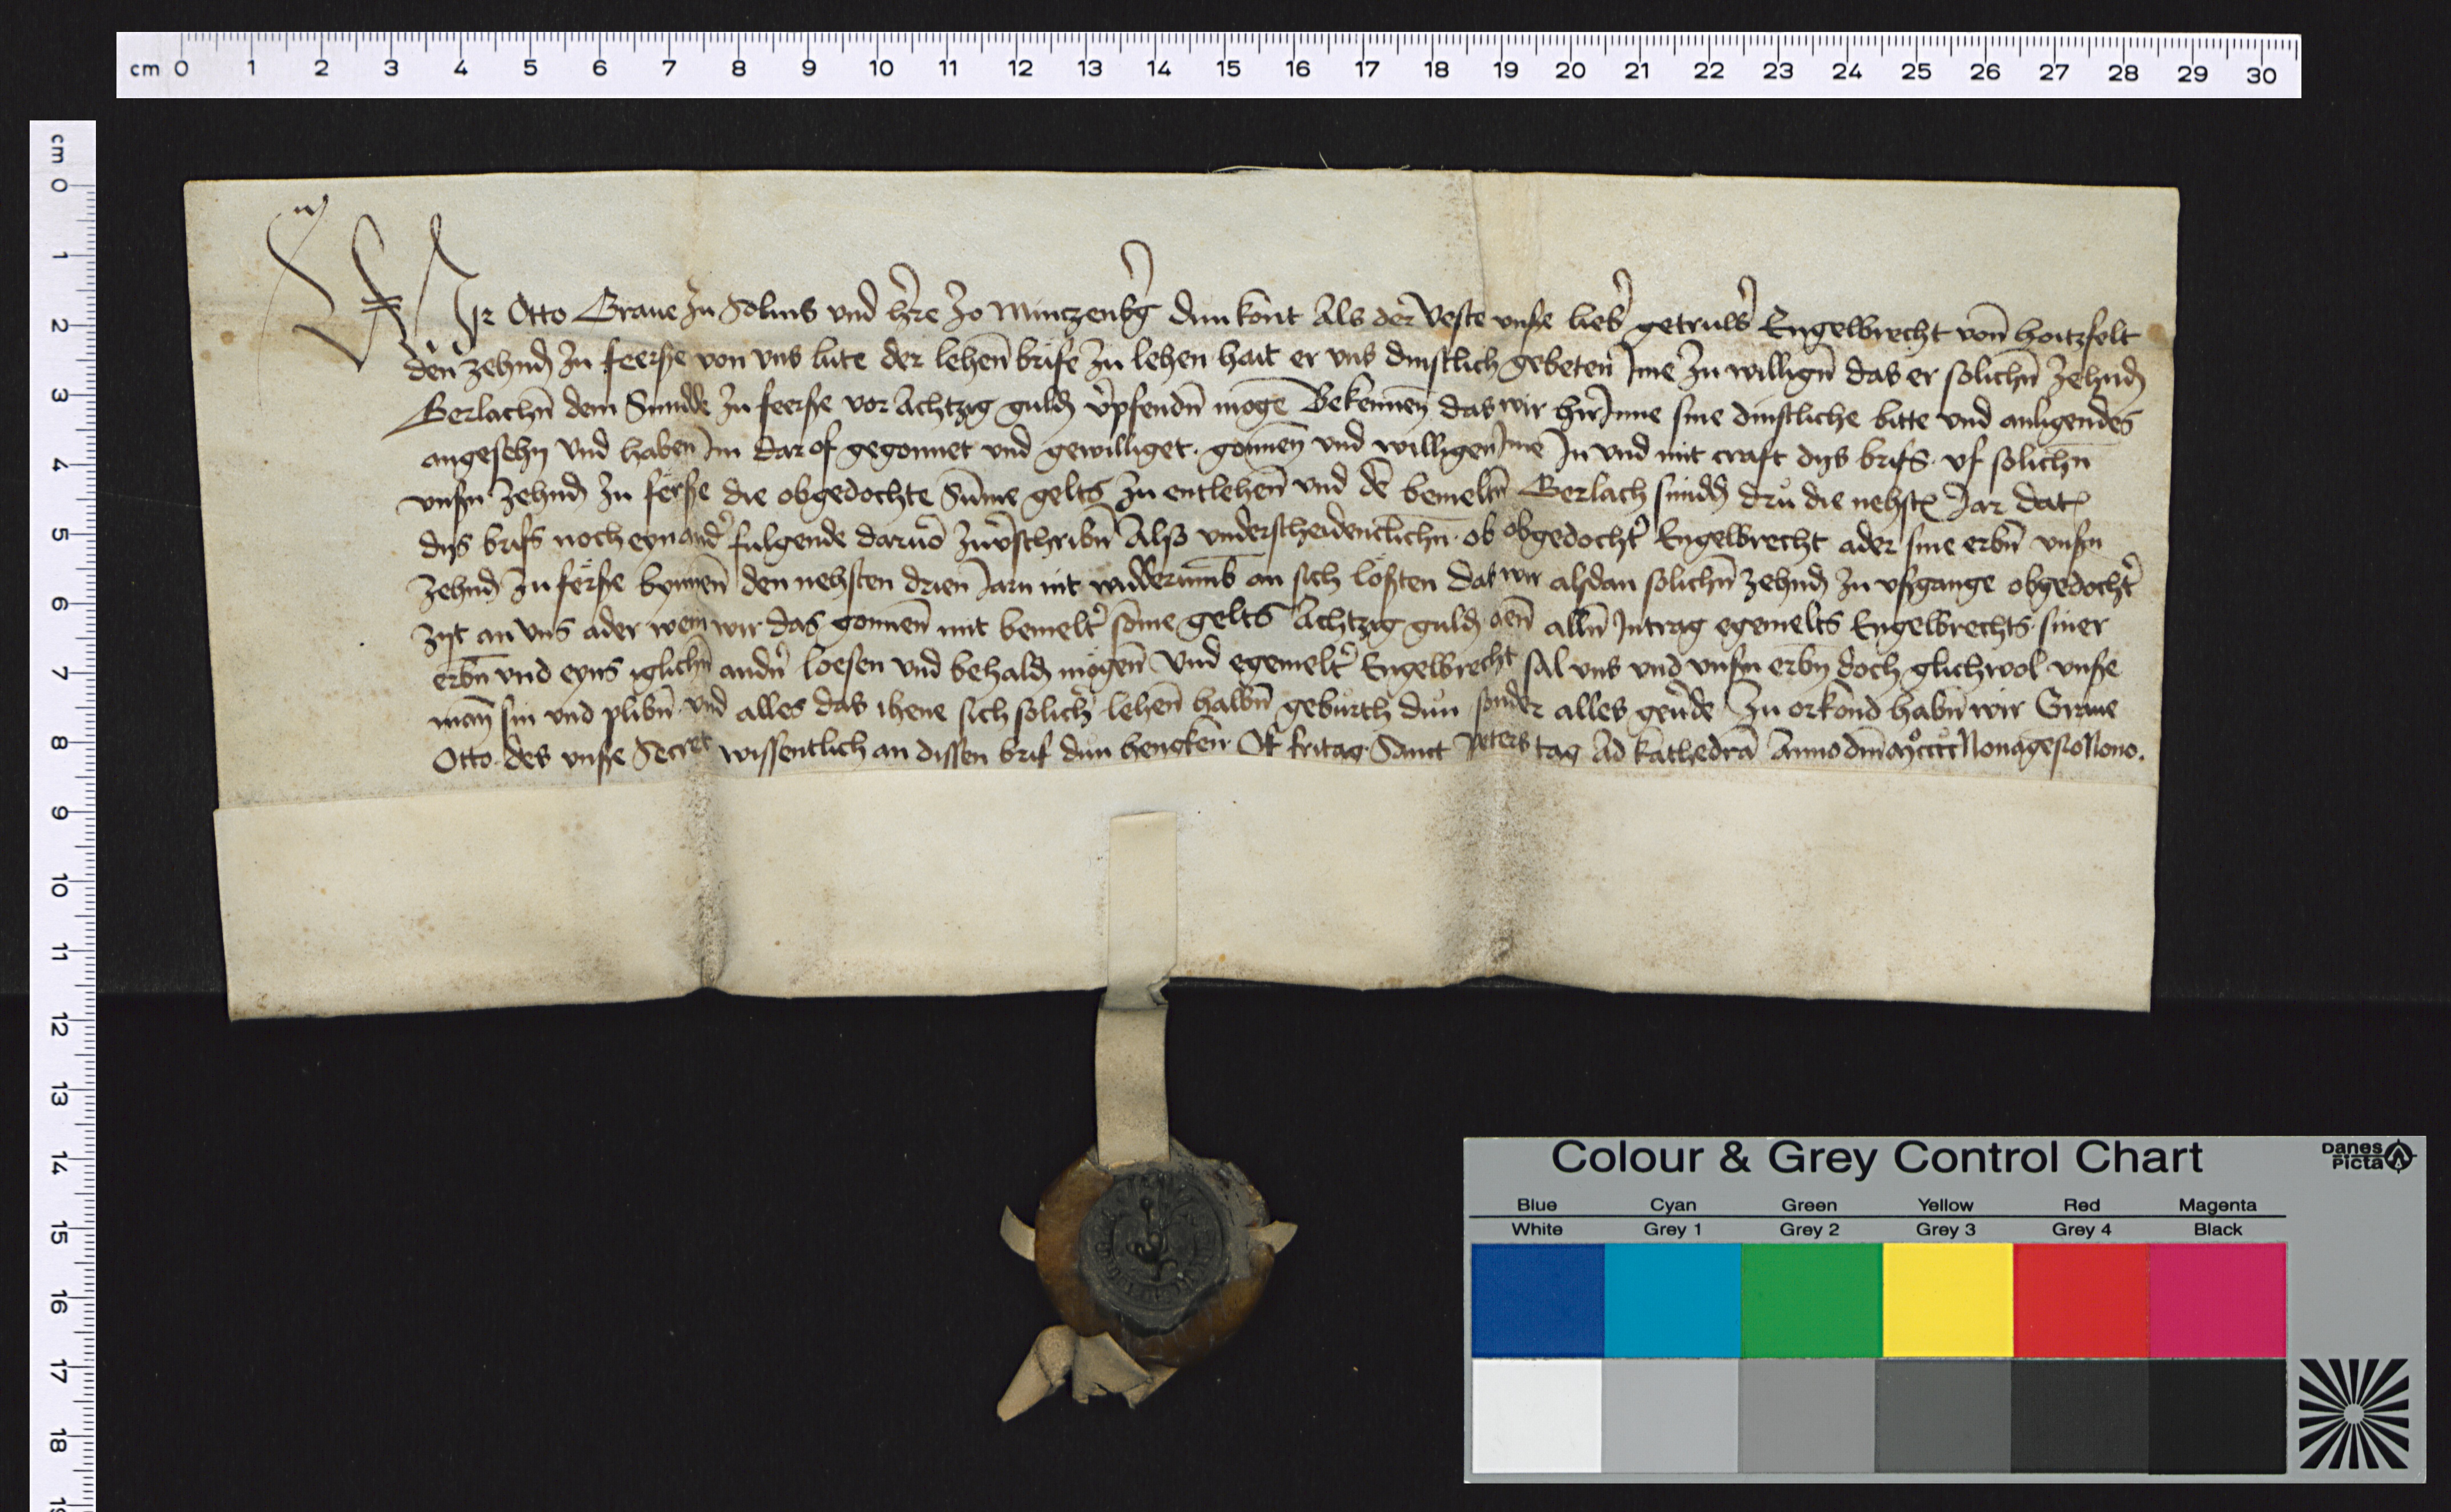 cm 0 1 2 3 4 5 6 7 8 9 10 11 12 13 14 15 16 17 18 19 20 21 22 23 24 25 26 27 28 29 30
cm 0 1 2 3 4 5 6 7 8 9 10 11 12 13 14 15 16 17 18
Wir Otto Graue zu Solms vnd h're zo Mintzenb'g dun kont Als der Veste vnse lieb' getruw' Engelbrecht von hoitzfelt
den zehnd zu feerse von vns lute der lehen brife zu lehen hait er vns dinstlich gebeten Ime zu willign das er solichn zehnd
Gerlachn dem Smidde zu feerse vor Achtzig guld v'pfendn moge Bekennen das wir hir Inne sine dinstliche bitte vnd anligendes
angesehn vnd haben Im dar of gegonnet vnd gewilliget. gonnen vnd willigen Ime In vnd mit craft dys brifs. vf solichn
vnsn zehnd zu ferse die obgedochte Sume gelts zu entlehen vnd de bemeltn Gerlach smidd dru die nehst Jar dat
dys brifs noch eynand' fulgende daruo zuv'schribn Also vnderscheidentlichn. ob obgedocht' Engelbrecht ader sine erbn vnsn
zehnd zu ferse bynnen den nehsten drien Jarn nit widderumb an sich losten das wir alsdan solichn zehnd zu vsgange obgedocht'
zyt an vns ader wem wir das gonnen mit bemelt' some gelts Achtzig guld aen alln Intrag egemelts Engelbrechts. siner
erbn vnd eyns iglichn andn' loesen vnd behald mogen vnd egemelt' Engelbrecht sal vns vnd vnsn erbn doch glichwol vnse
man sin vnd plibn. vnd alles das ihene sich solich' lehen halbn geburth dun sonder alles geu'de Zu orkond habn wir Graue
Otto. des vnse Secret wissentlich an dissen brif dun hencken. Of fritag Sanct Peters tag Ad kathedra Anno dm Mcccc Nonagesio Nono.
Colour & Grey Control Chart
Danes Picta
Blue Cyan Green Yellow Red Magenta
White Grey 1 Grey 2 Grey 3 Grey 4 Black